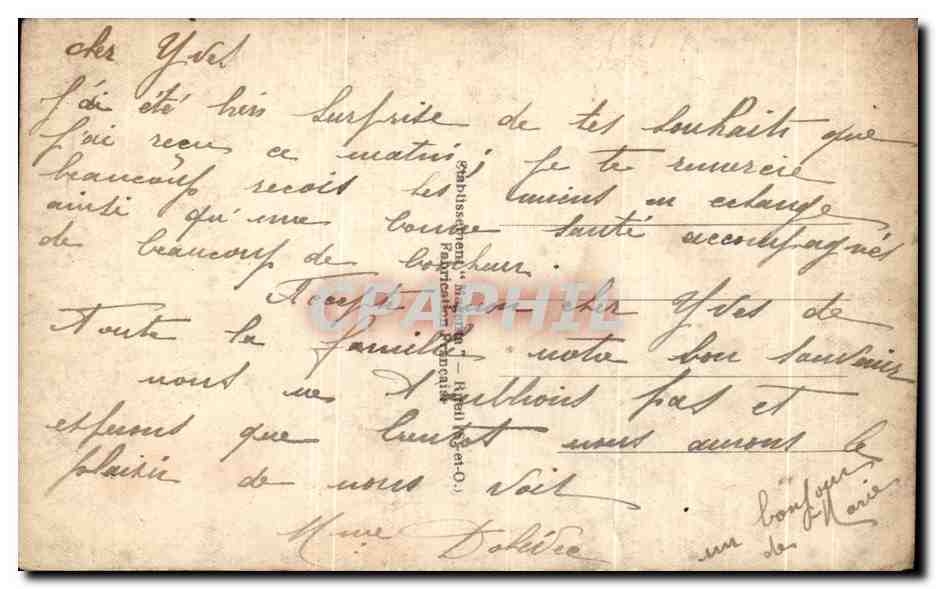 cher Yves
J'ai été bien surprise de tes souhaits que
j'ai reçu ce matin ; Je te remercie
beaucoup recois les miens en echange
ainsi qu'une bonne santé accompagnés
de beaucoup de bonheur.
Accepte mon cher Yves de
toute la famille notre bon souvenir
nous ne t'oublions pas et
esperons que bientot nous aurons le
plaisir de nous voir
Mme
un bonjour
de Marie
Etablissement "
" — Rueil (S.-et-O.)
Fabrication Française
CPAPHIL